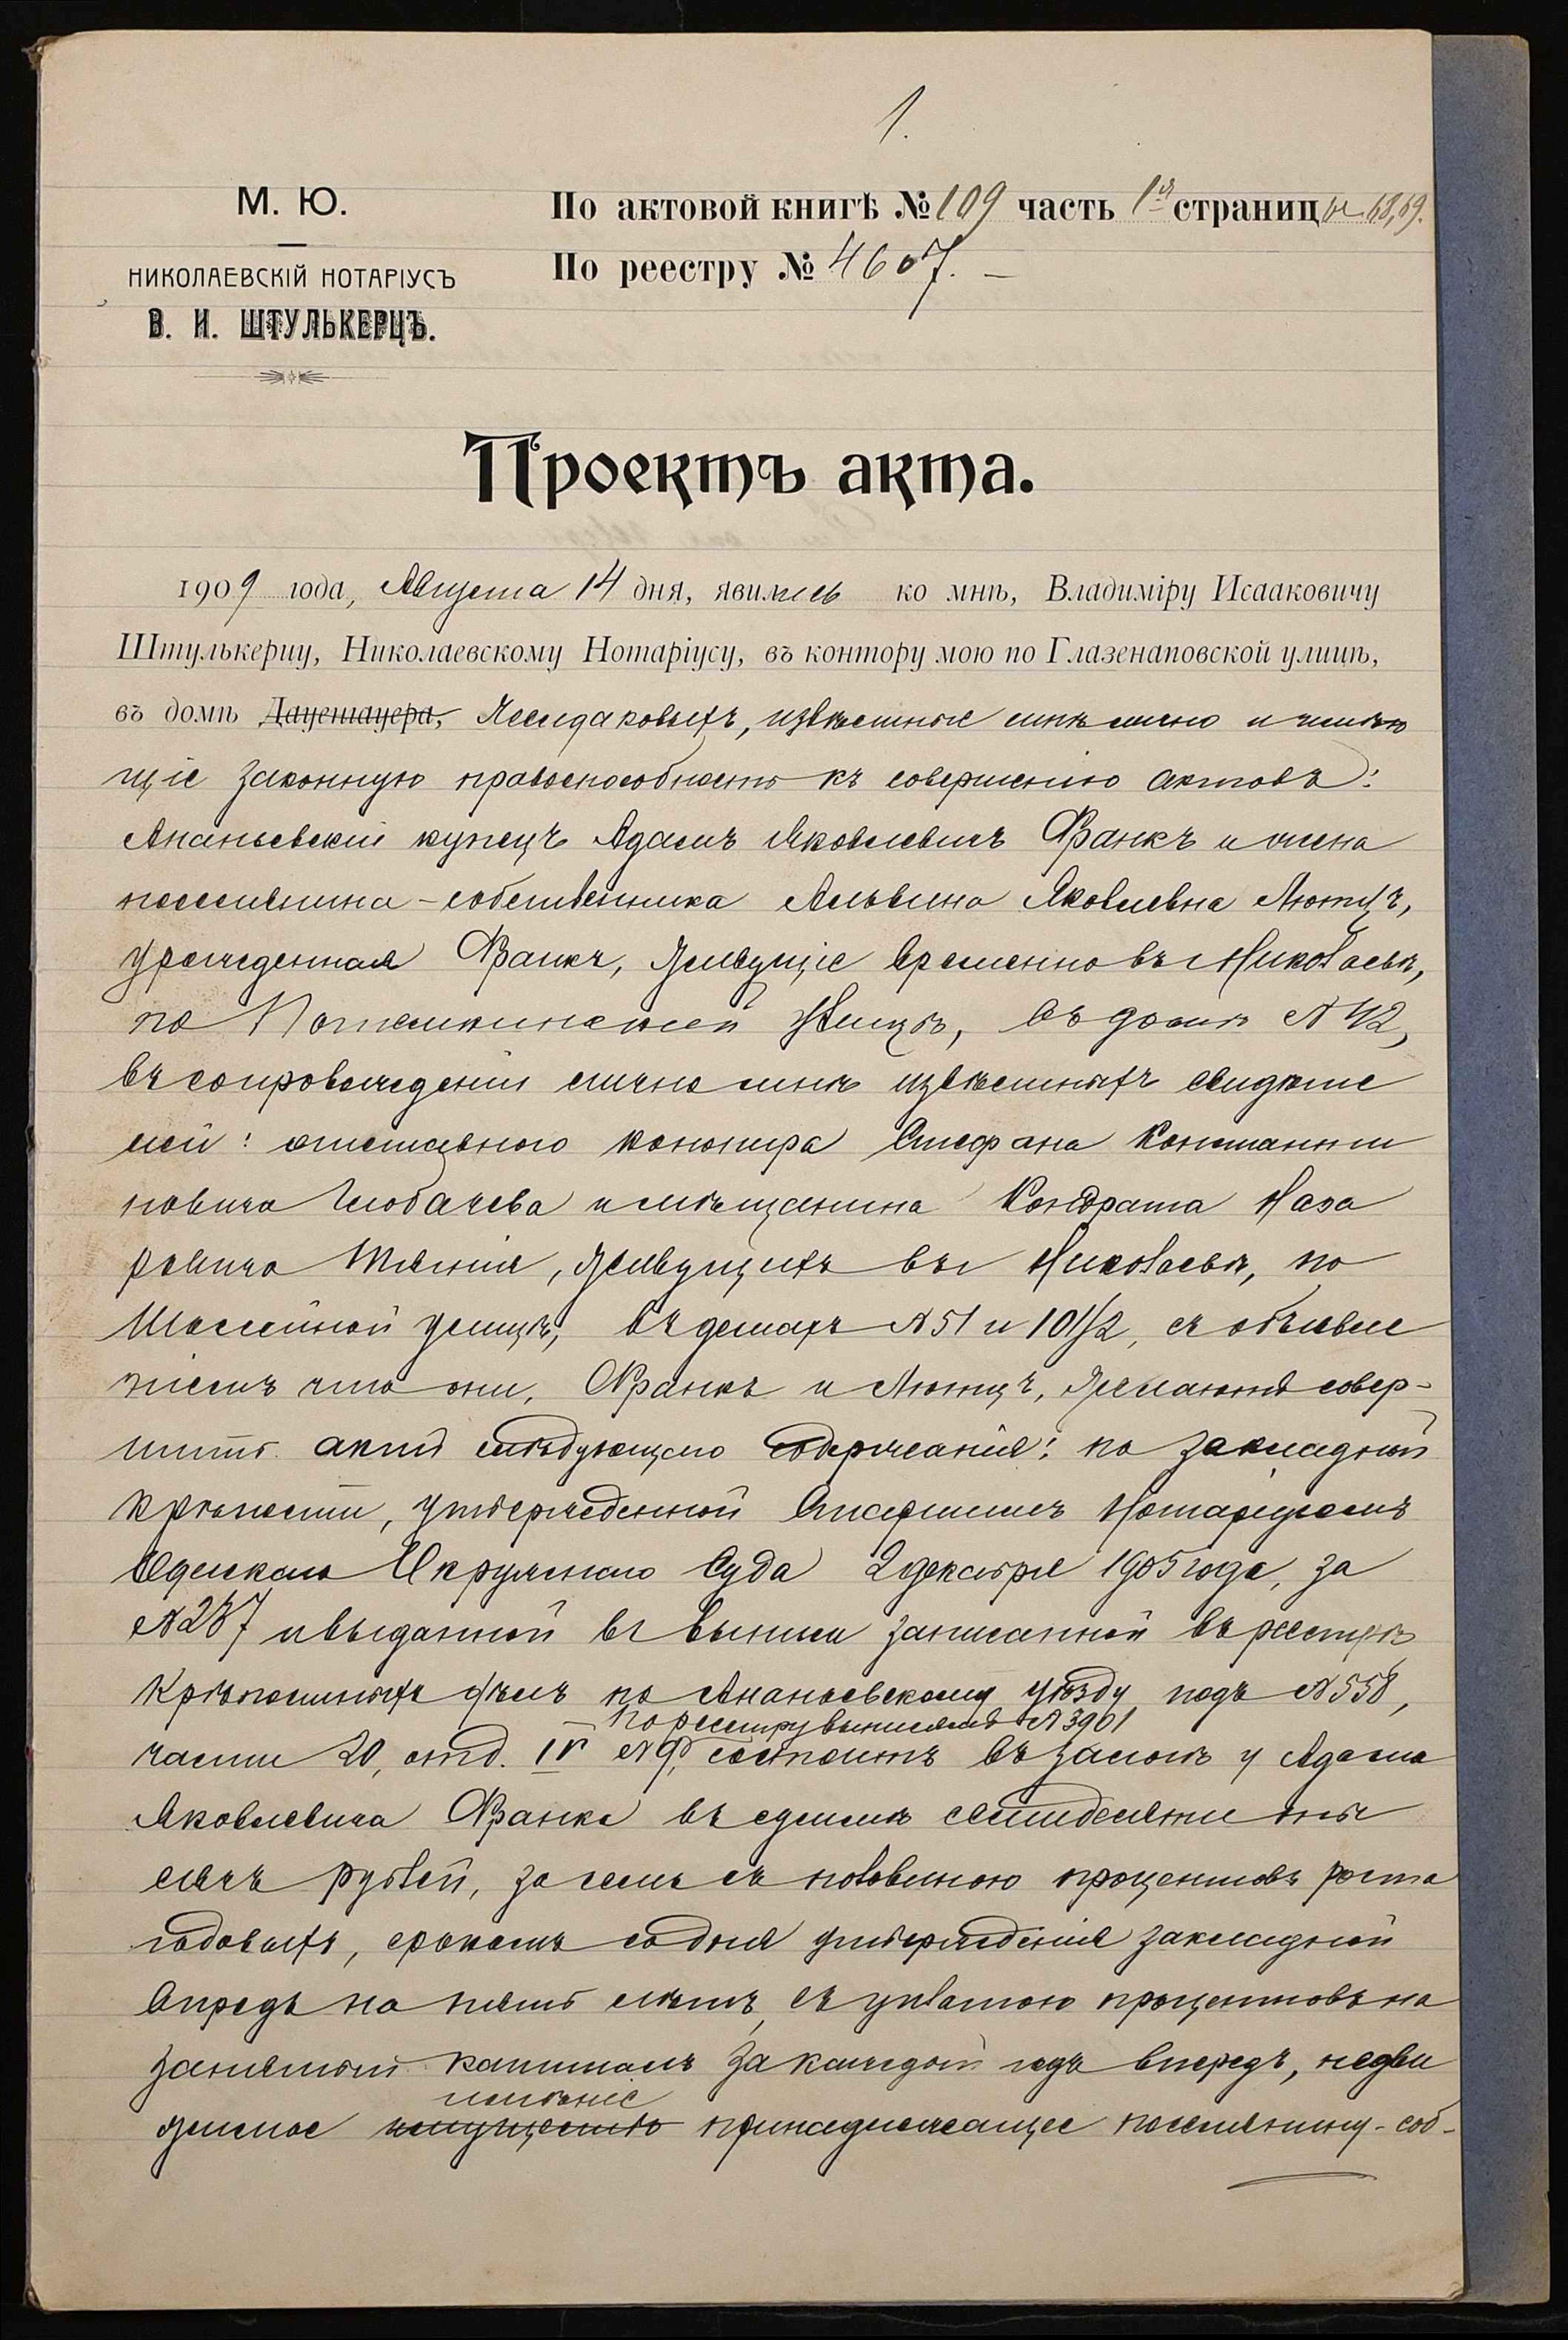 1.
М. Ю.
НИКОЛАЕВСКІЙ НОТАРІУСЪ
В. И. ШТУЛЬКЕРЦЪ.
По актовой книгѣ № 109 часть 1я страницы 68,69.
По реестру № 4607.
Проектъ акта.
1909 года, Августа 14 дня, явились ко мнѣ, Владиміру Исааковичу
Штулькерцу, Николаевскому Нотаріусу, въ контору мою по Глазенаповской улицѣ,
въ домѣ Дауенгауера, извѣстные мнѣ лично и имѣю
щіе законную правоспособность къ совершенію актовъ:
Ананьевскій купецъ Адамъ Яковлевичъ Франкъ и жена
поселянина-собственника Альвина Яковлевна Лютцъ,
урожденная Франкъ, живущіе временно въ Николаевѣ,
по Потемкинской улицѣ, въ домѣ №42,
въ сопровожденіи лично мнѣ извѣстныхъ свидѣте
лей: отставного юнкера Стефана Константи
новича и мѣщанина Кондрата Наза
ровича живущихъ въ Николаевѣ, по
Шоссейной улицѣ, въ домахъ №51 и 101/2, съ объявле
ніемъ что они, Франкъ и Лютцъ, желаютъ совер-
шить актъ слѣдующаго содержанія: по закладной
крѣпости, утвержденной Старшимъ Нотаріусомъ
Одесскаго Окружнаго Суда 2 декабря 1905 года, за
№237 и выданной въ выписи записанной въ реестрѣ
крѣпостныхъ дѣлъ по Ананьевскому уѣзду подъ №558,
по реестру выписей №3901
части 20, отд. IV состоитъ въ залогѣ у Адама
Яковлевича Франка въ суммѣ семидесяти ты
сячъ рублей, за семь съ половиною процентовъ роста
годовыхъ, срокомъ со дня утвержденія закладной
впредь на пять лѣтъ, съ уплатою процентовъ на
занятый капиталъ за каждый годъ впередъ, недви
имѣніе
жимое имущество принадлежащее поселянину-соб-